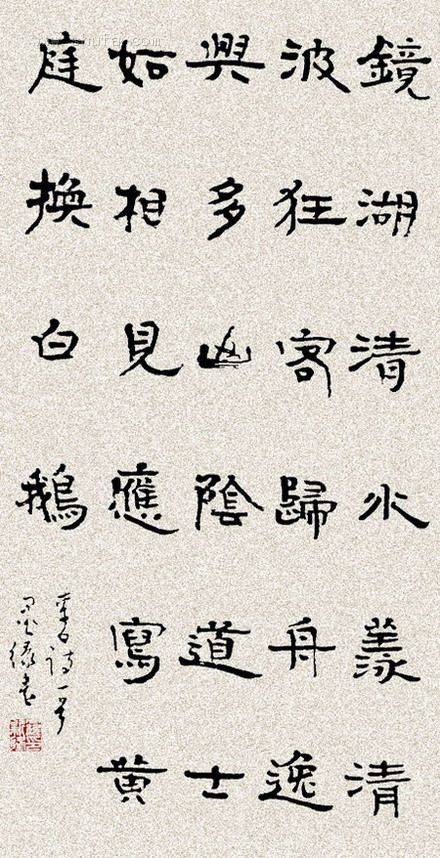 鏡湖清水漾清
波狂客歸舟逸
興多山陰道士
如相見應寫黃
庭換白鵝
李白詩一首